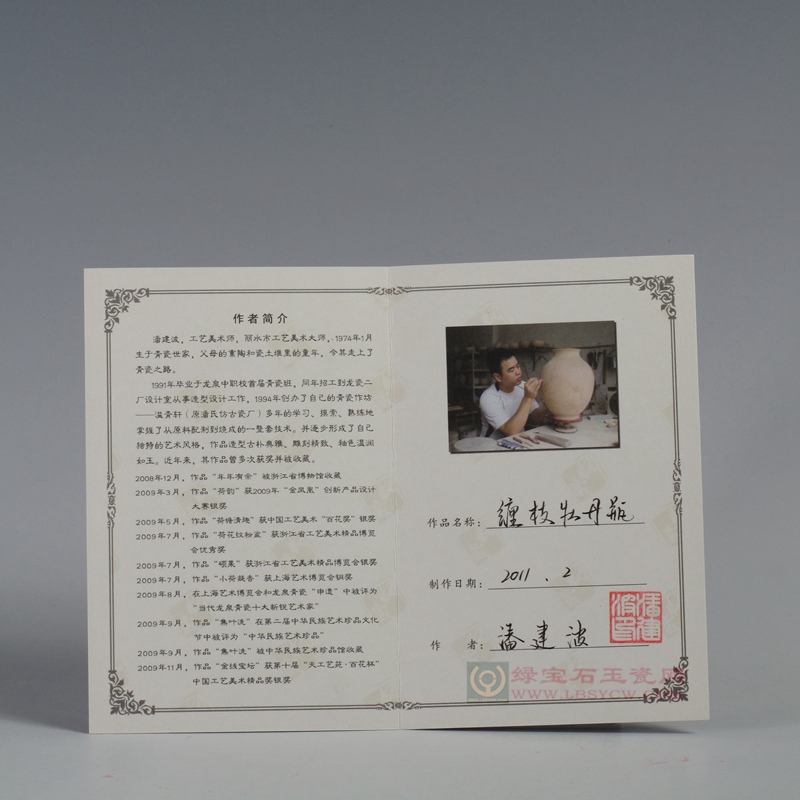 作者简介
潘建波，工艺美术师，丽水市工艺美术大师，1974年1月
生于青瓷世家，父母的熏陶和瓷土堆里的童年，令其走上了
青瓷之路。
1991年毕业于龙泉中职校首届青瓷班，同年招工到龙瓷二
厂设计室从事造型设计工作，1994年创办了自己的青瓷作坊
——温青轩（原潘氏仿古瓷厂）多年的学习、探索、熟练地
掌握了从原料配制到烧成的一整套技术。并逐步形成了自己
独特的艺术风格，作品造型古朴典雅、雕刻精致、釉色温润
如玉。近年来，其作品曾多次获奖并被收藏。
2008年12月，作品“年年有余”被浙江省博物馆收藏
2009年3月，作品“荷韵”获2009年“金凤凰”创新产品设计
大赛银奖
2009年5月，作品“荷塘清趣”获中国工艺美术“百花奖”银奖
2009年7月，作品“荷花纹粉盒”获浙江省工艺美术精品博览
会优秀奖
2009年7月，作品“硕果”获浙江省工艺美术精品博览会银奖
2009年7月，作品“小荷凝香”获上海艺术博览会铜奖
2009年8月，在上海艺术博览会和龙泉青瓷“申遗”中被评为
“当代龙泉青瓷十大新锐艺术家”
2009年9月，作品“蕉叶洗”在第二届中华民族艺术珍品文化
节中被评为“中华民族艺术珍品”
2009年9月，作品“蕉叶洗”被中华民族艺术珍品馆收藏
2009年11月，作品“金线宝坛”获第十届“天工艺苑·百花杯”
中国工艺美术精品奖银奖
作品名称：缠枝牡丹瓶
制作日期：2011.2
作　者：潘建波
潘建波印
绿宝石玉瓷网
WWW.LBSYCW.COM